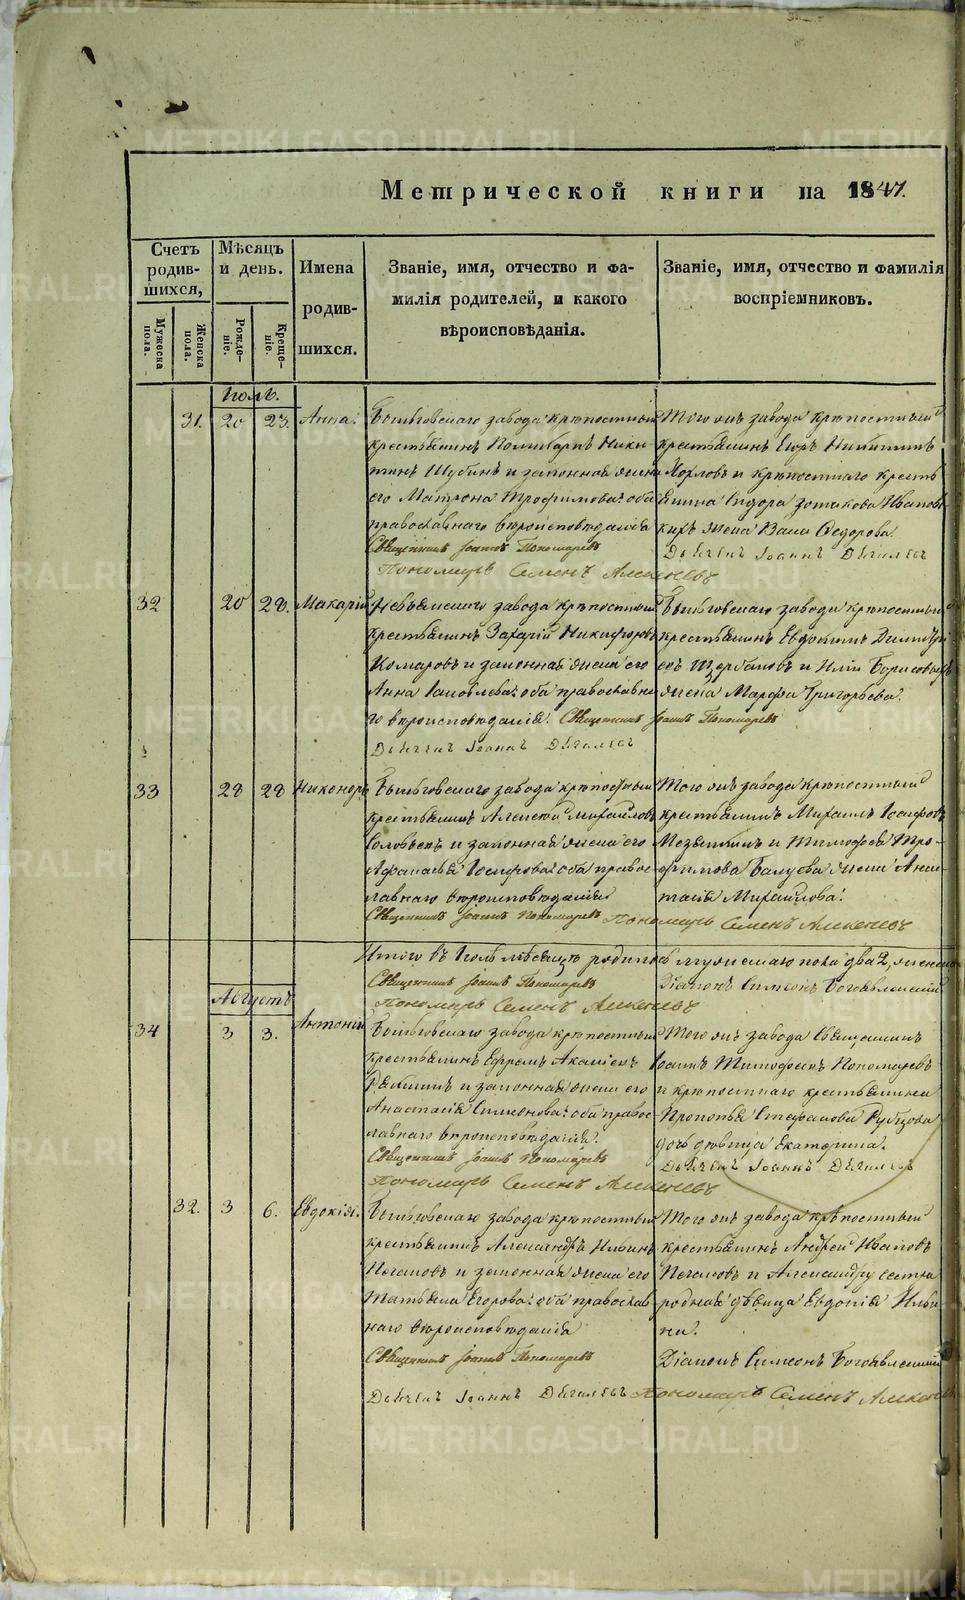 METRIKI.GASO-URAL.RU
Метрической книги на 1847.
Счетъ родив-
шихся,
Мужеска пола.
Женска пола.
Мѣсяцъ
и день.
Рожде-
ніе.
Креще-
ніе.
Имена
родив-
шихся.
Званіе, имя, отчество и фа-
милія родителей, и какого
вѣроисповѣданія.
Званіе, имя, отчество и фамилія
воспріемниковъ.
Іюль.
31. 20 23. Анна.
завода крѣпостный
крестьянинъ Поликарпъ Ники-
тинъ Шубинъ и законная жена
его Матрона Трофимова: оба
православнаго вѣроисповѣданія
Священникъ Іоаннъ Пономаревъ
Пономарь Семенъ
Того жъ завода крѣпостный
крестьянинъ Егоръ Никитинъ
и крѣпостнаго кресть-
янина Сидора
жена Васса Ѳедорова.
Дьячекъ Іоаннъ
32 20 28. Макарій
завода крѣпостный
крестьянинъ Захарій Никифоровъ
Комаровъ и законная жена его
Анна Іаковлева: оба православна-
го вѣроисповѣданія. Священникъ Іоаннъ Пономаревъ
Дьячекъ Іоаннъ
завода крѣпостный
крестьянинъ Евдокимъ Димитрі-
евъ Щербаковъ и
жена Марфа Григорьева.
33 28 28 Никаноръ
завода крѣпостный
крестьянинъ Алексѣй Михайловъ
Соловьевъ и законная жена его
Афанасья оба правос-
лавнаго вѣроисповѣданія
Священникъ Іоаннъ Пономаревъ Пономарь Семенъ
Того жъ завода крѣпостный
крестьянинъ Михаилъ
и Тимофея Тро-
фимова жена Анас-
тасія Михайлова.
Итого въ Іюлѣ мѣсяцѣ родилось мужескаго пола два 2,
Священникъ Іоаннъ Пономаревъ
Діаконъ Симеонъ Богоявленскій
Пономарь Семенъ
Августъ
34 3 3. Антоній
завода крѣпостный
крестьянинъ Ефремъ
и законная жена его
Анастасія Симеонова: оба правос-
лавнаго вѣроисповѣданія.
Священникъ Іоаннъ Пономаревъ
Пономарь Семенъ
Того жъ завода Священникъ
Іоаннъ Тимофеевъ Пономаревъ
и крѣпостнаго крестьянина
Прокопья Стефанова Рубцова
дочь дѣвица Екатерина.
Дьячекъ Іоаннъ
32. 3 6. Евдокія.
завода крѣпостный
крестьянинъ Александръ Ильинъ
и законная жена его
Татьяна Егорова: оба православ-
наго вѣроисповѣданія
Священникъ Іоаннъ Пономаревъ
Дьячекъ Іоаннъ
Того жъ завода крѣпостный
крестьянинъ Андрей Ивановъ
и Александру сестра
родная дѣвица Евдокія Ильи-
на.
Діаконъ Симеонъ Богоявленскій
Пономарь Семенъ